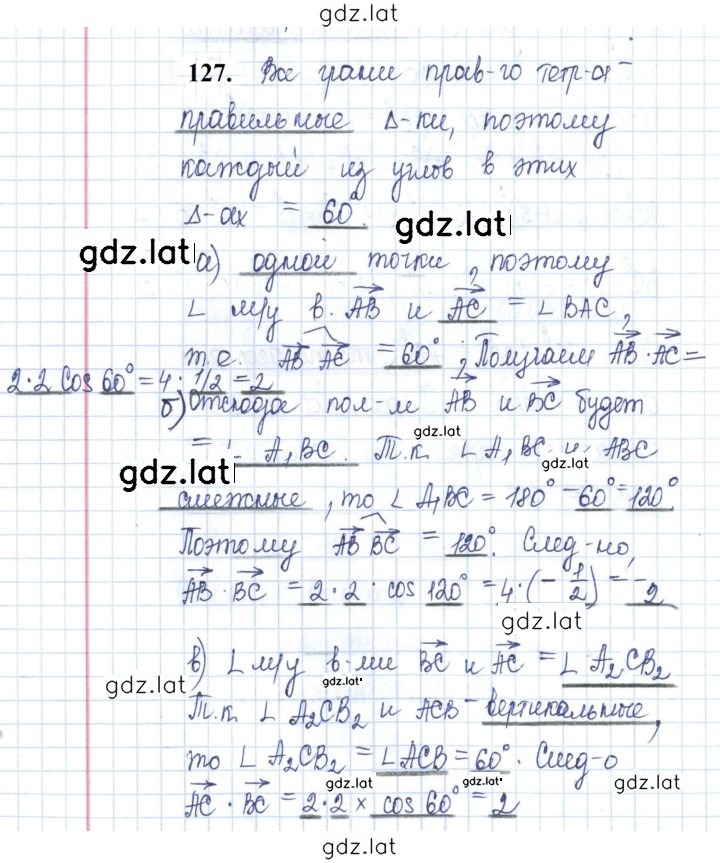 gdz.lat
127. Все грани прав-го тетр-а -
правильные Δ-ки, поэтому
каждый из углов в этих
Δ-ах = 60°.
gdz.lat
gdz.lat
а) одной точки, поэтому
∠ м/у в. AB и AC = ∠ BAC,
т.е. AB AC = 60°; Получаем AB · AC =
2·2 cos 60° = 4 · 1/2 = 2
б) Отсюда пол-м AB и BC будет
gdz.lat
= ∠ A₁BC. Т.к. ∠ A₁BC и ABC
gdz.lat
gdz.lat
смежные, то ∠ A₁BC = 180° - 60° = 120°.
Поэтому AB BC = 120°. След-но,
AB · BC = 2 · 2 · cos 120° = 4 · (- 1/2) = -2
gdz.lat
в) ∠ м/у в-ми BC и AC = ∠ A₂CB₂
gdz.lat
gdz.lat
Т.к. ∠ A₂CB₂ и ACB - вертикальные,
то ∠ A₂CB₂ = ∠ACB = 60°. След-о
gdz.lat
gdz.lat
gdz.lat
AC · BC = 2·2 × cos 60° = 2
gdz.lat